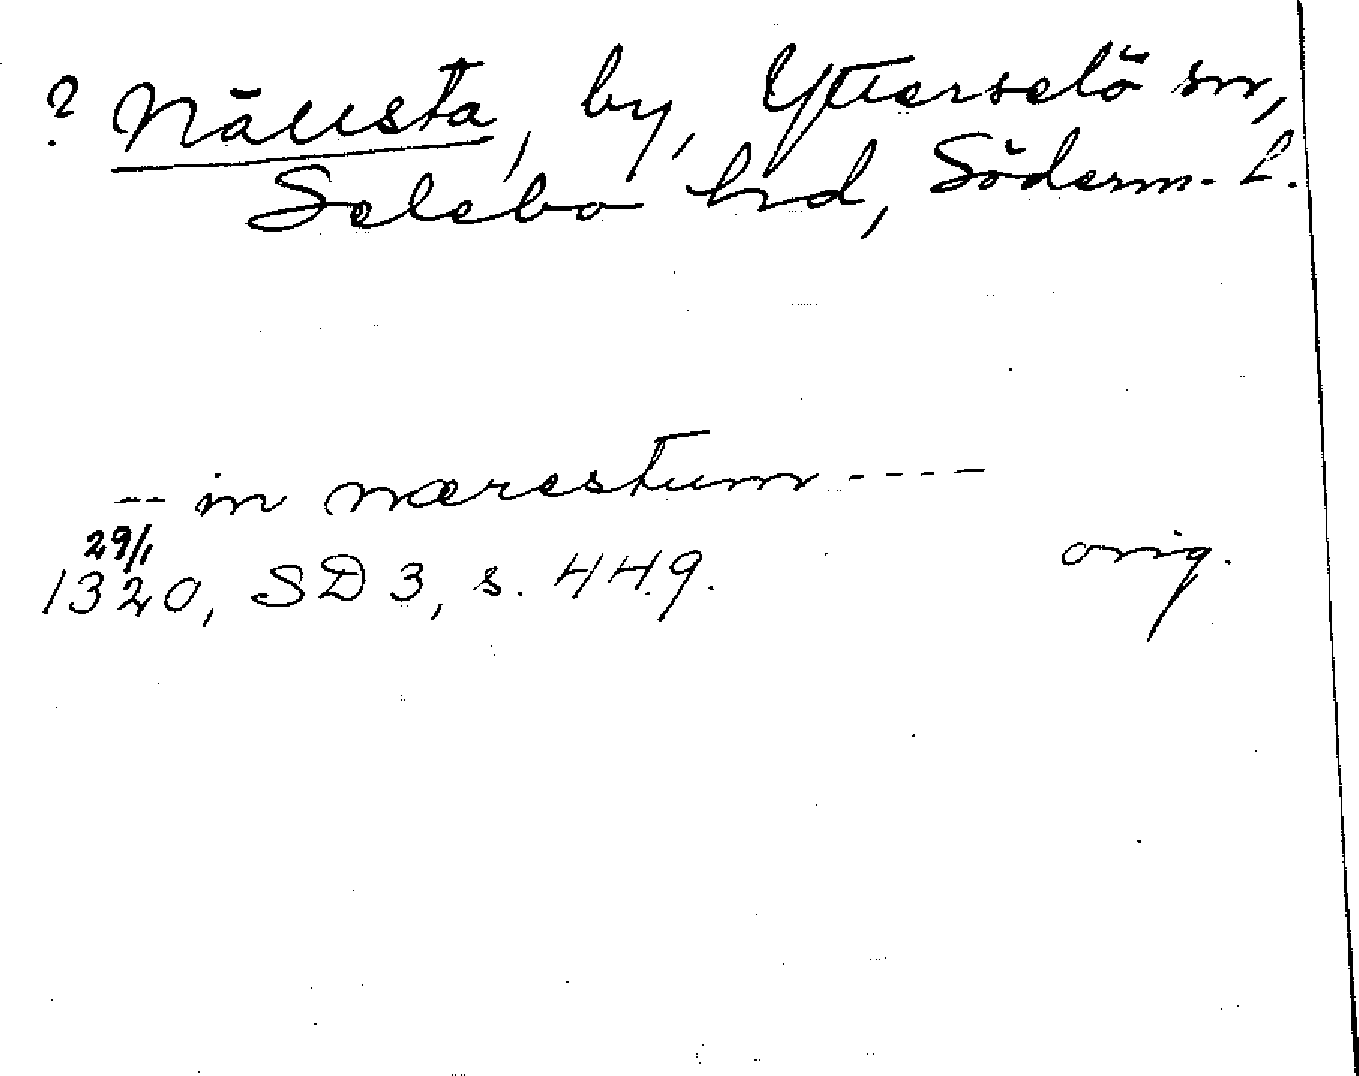 ? Nällsta, by, Ytterselö sn,
Selebo hd, Söderm. l.
-- in nærestum ----
29/1
1320, SD 3, s. 449. orig.